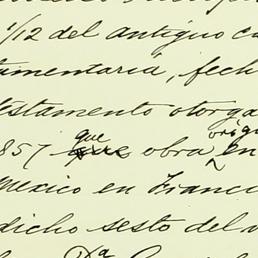 1/12 del antiguo c
umentaria, fech
estamento otorga
857 que obra en
Mexico en Franci
dicho sesto del
Dª